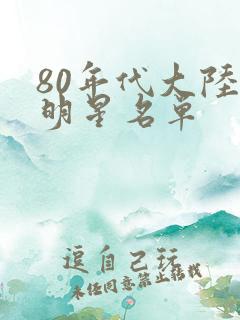 80年代大陸
明星名单
逗自己玩
未经同意禁止转载